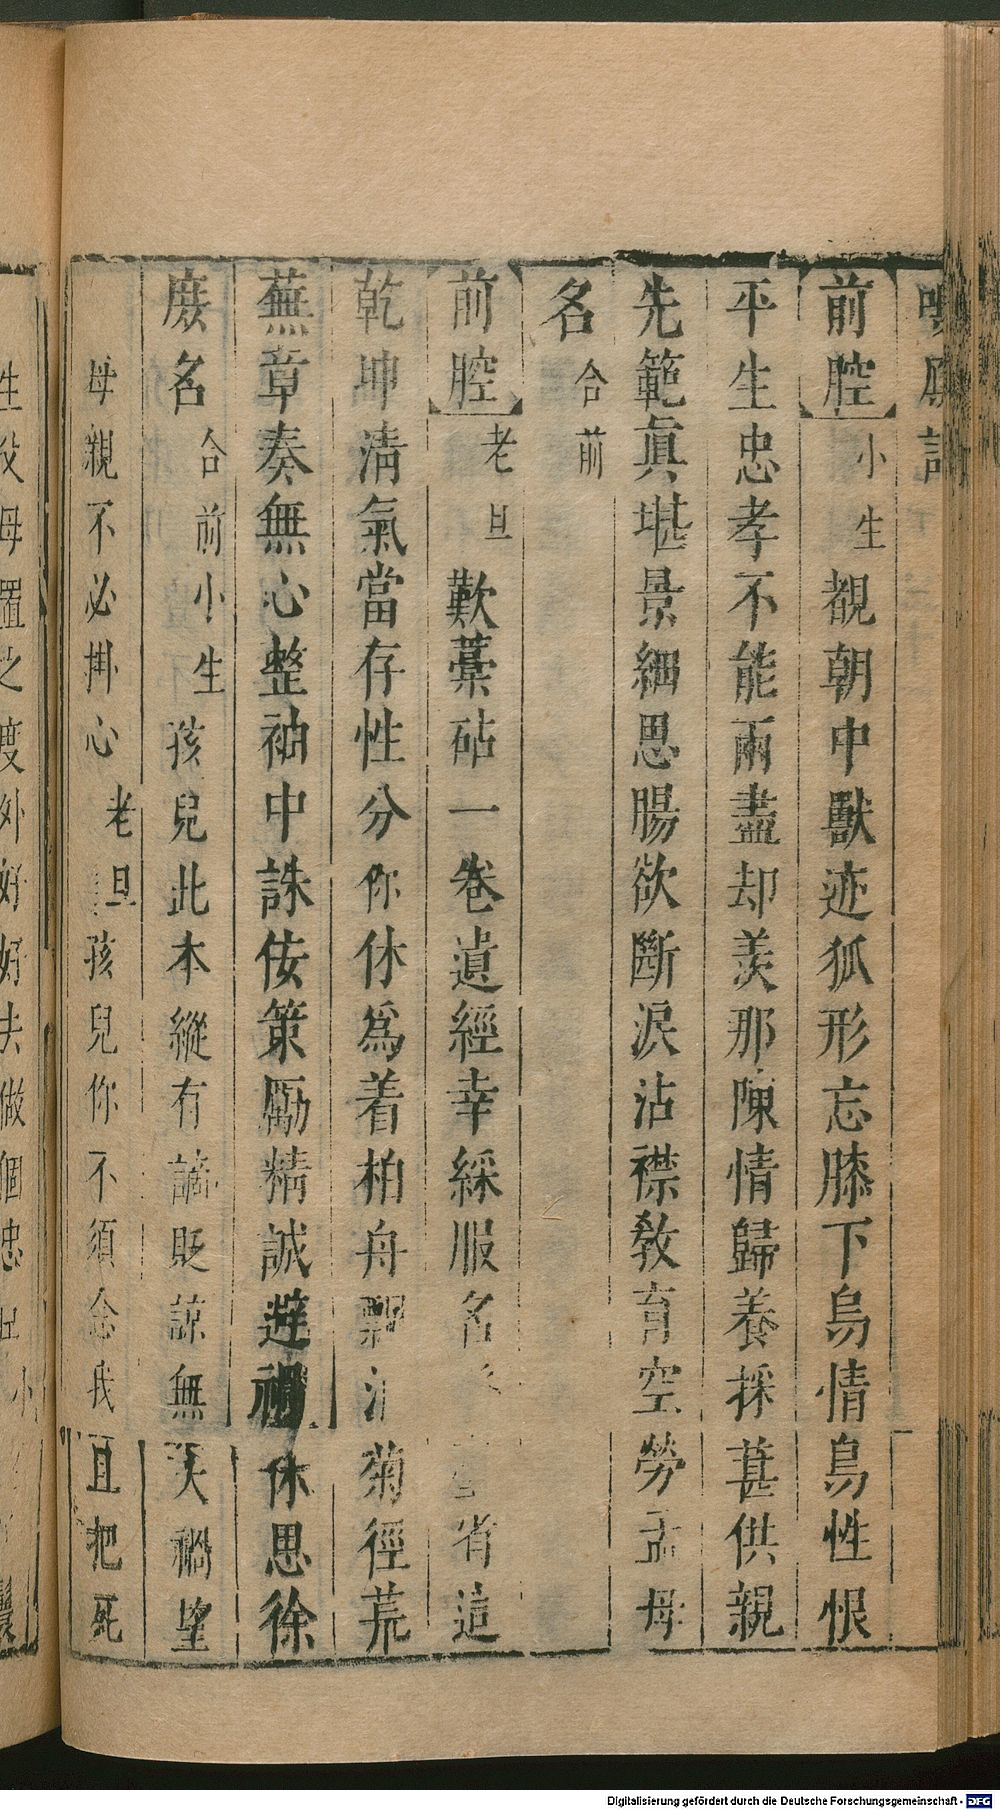 前腔 小生 覩朝中獸迹狐形忘膝下烏情鳥性恨
平生忠孝不能兩盡却羨那陳情歸養採葚供親
先範眞堪景細思腸欲斷淚沾襟敎育空勞孟母
名 合前
前腔 老旦 歎藁砧一卷遺經幸綵服名 省這
乾坤清氣當存性分你休爲着柏舟飄 菊徑荒
蕪章奏無心整袖中誅佞策勵精誠避禍休思徐
庶名 合前 小生 孩兒此本縱有謫貶諒無大禍望
母親不必掛心 老旦 孩兒你不須念我且把死
生父母置之度外好好去做個忠 小
Digitalisierung gefördert durch die Deutsche Forschungsgemeinschaft - DFG